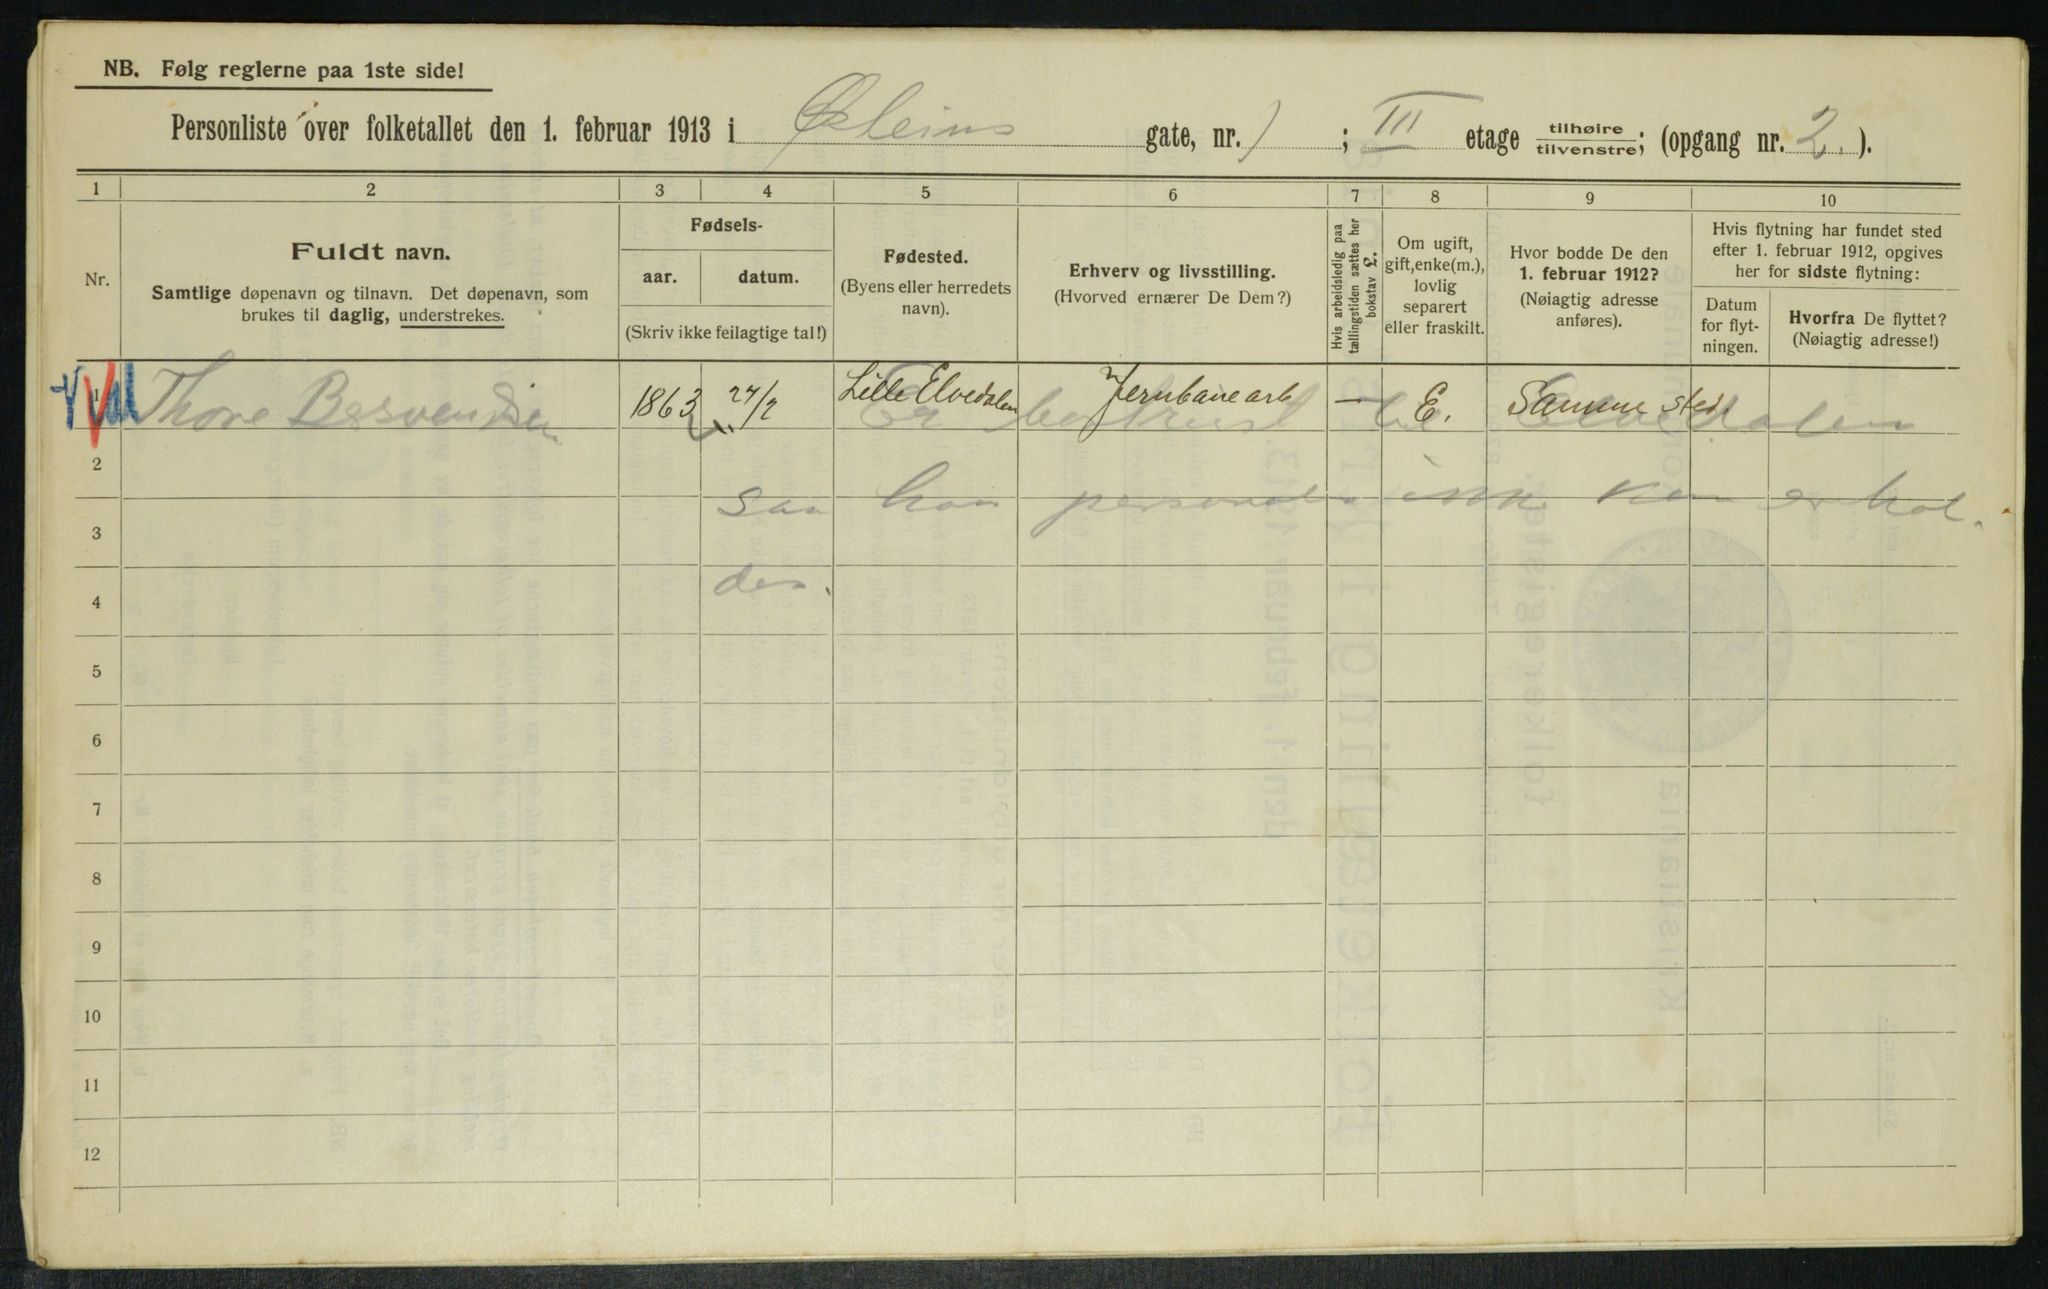 NB. Følg reglerne paa 1ste side!
Personliste over folketallet den 1. februar 1913 i Østeins gate, nr. 1 ; III etage tilhøire/tilvenstre; (opgang nr. 2.).
1 2 3 4 5 6 7 8 9 10
Nr.
Fuldt navn.
Samtlige døpenavn og tilnavn. Det døpenavn, som
brukes til daglig, understrekes.
Fødsels-
aar. datum.
(Skriv ikke feilagtige tal!)
Fødested.
(Byens eller herredets
navn).
Erhverv og livsstilling.
(Hvorved ernærer De Dem?)
Hvis arbeidsledig paa
tællingstiden sættes her
bokstav L.
Om ugift,
gift, enke(m.),
lovlig
separert
eller fraskilt.
Hvor bodde De den
1. februar 1912?
(Nøiagtig adresse
anføres).
Hvis flytning har fundet sted
efter 1. februar 1912, opgives
her for sidste flytning:
Datum
for flyt-
ningen.
Hvorfra De flyttet?
(Nøiagtig adresse!)
1 Thore 1863 24/2 Lille Elvedalen Jernbanearb — E. Samme sted.
Er bortreist til Elvedalen
2
saa han personalia ikke kan erhol-
3
des.
4
5
6
7
8
9
10
11
12